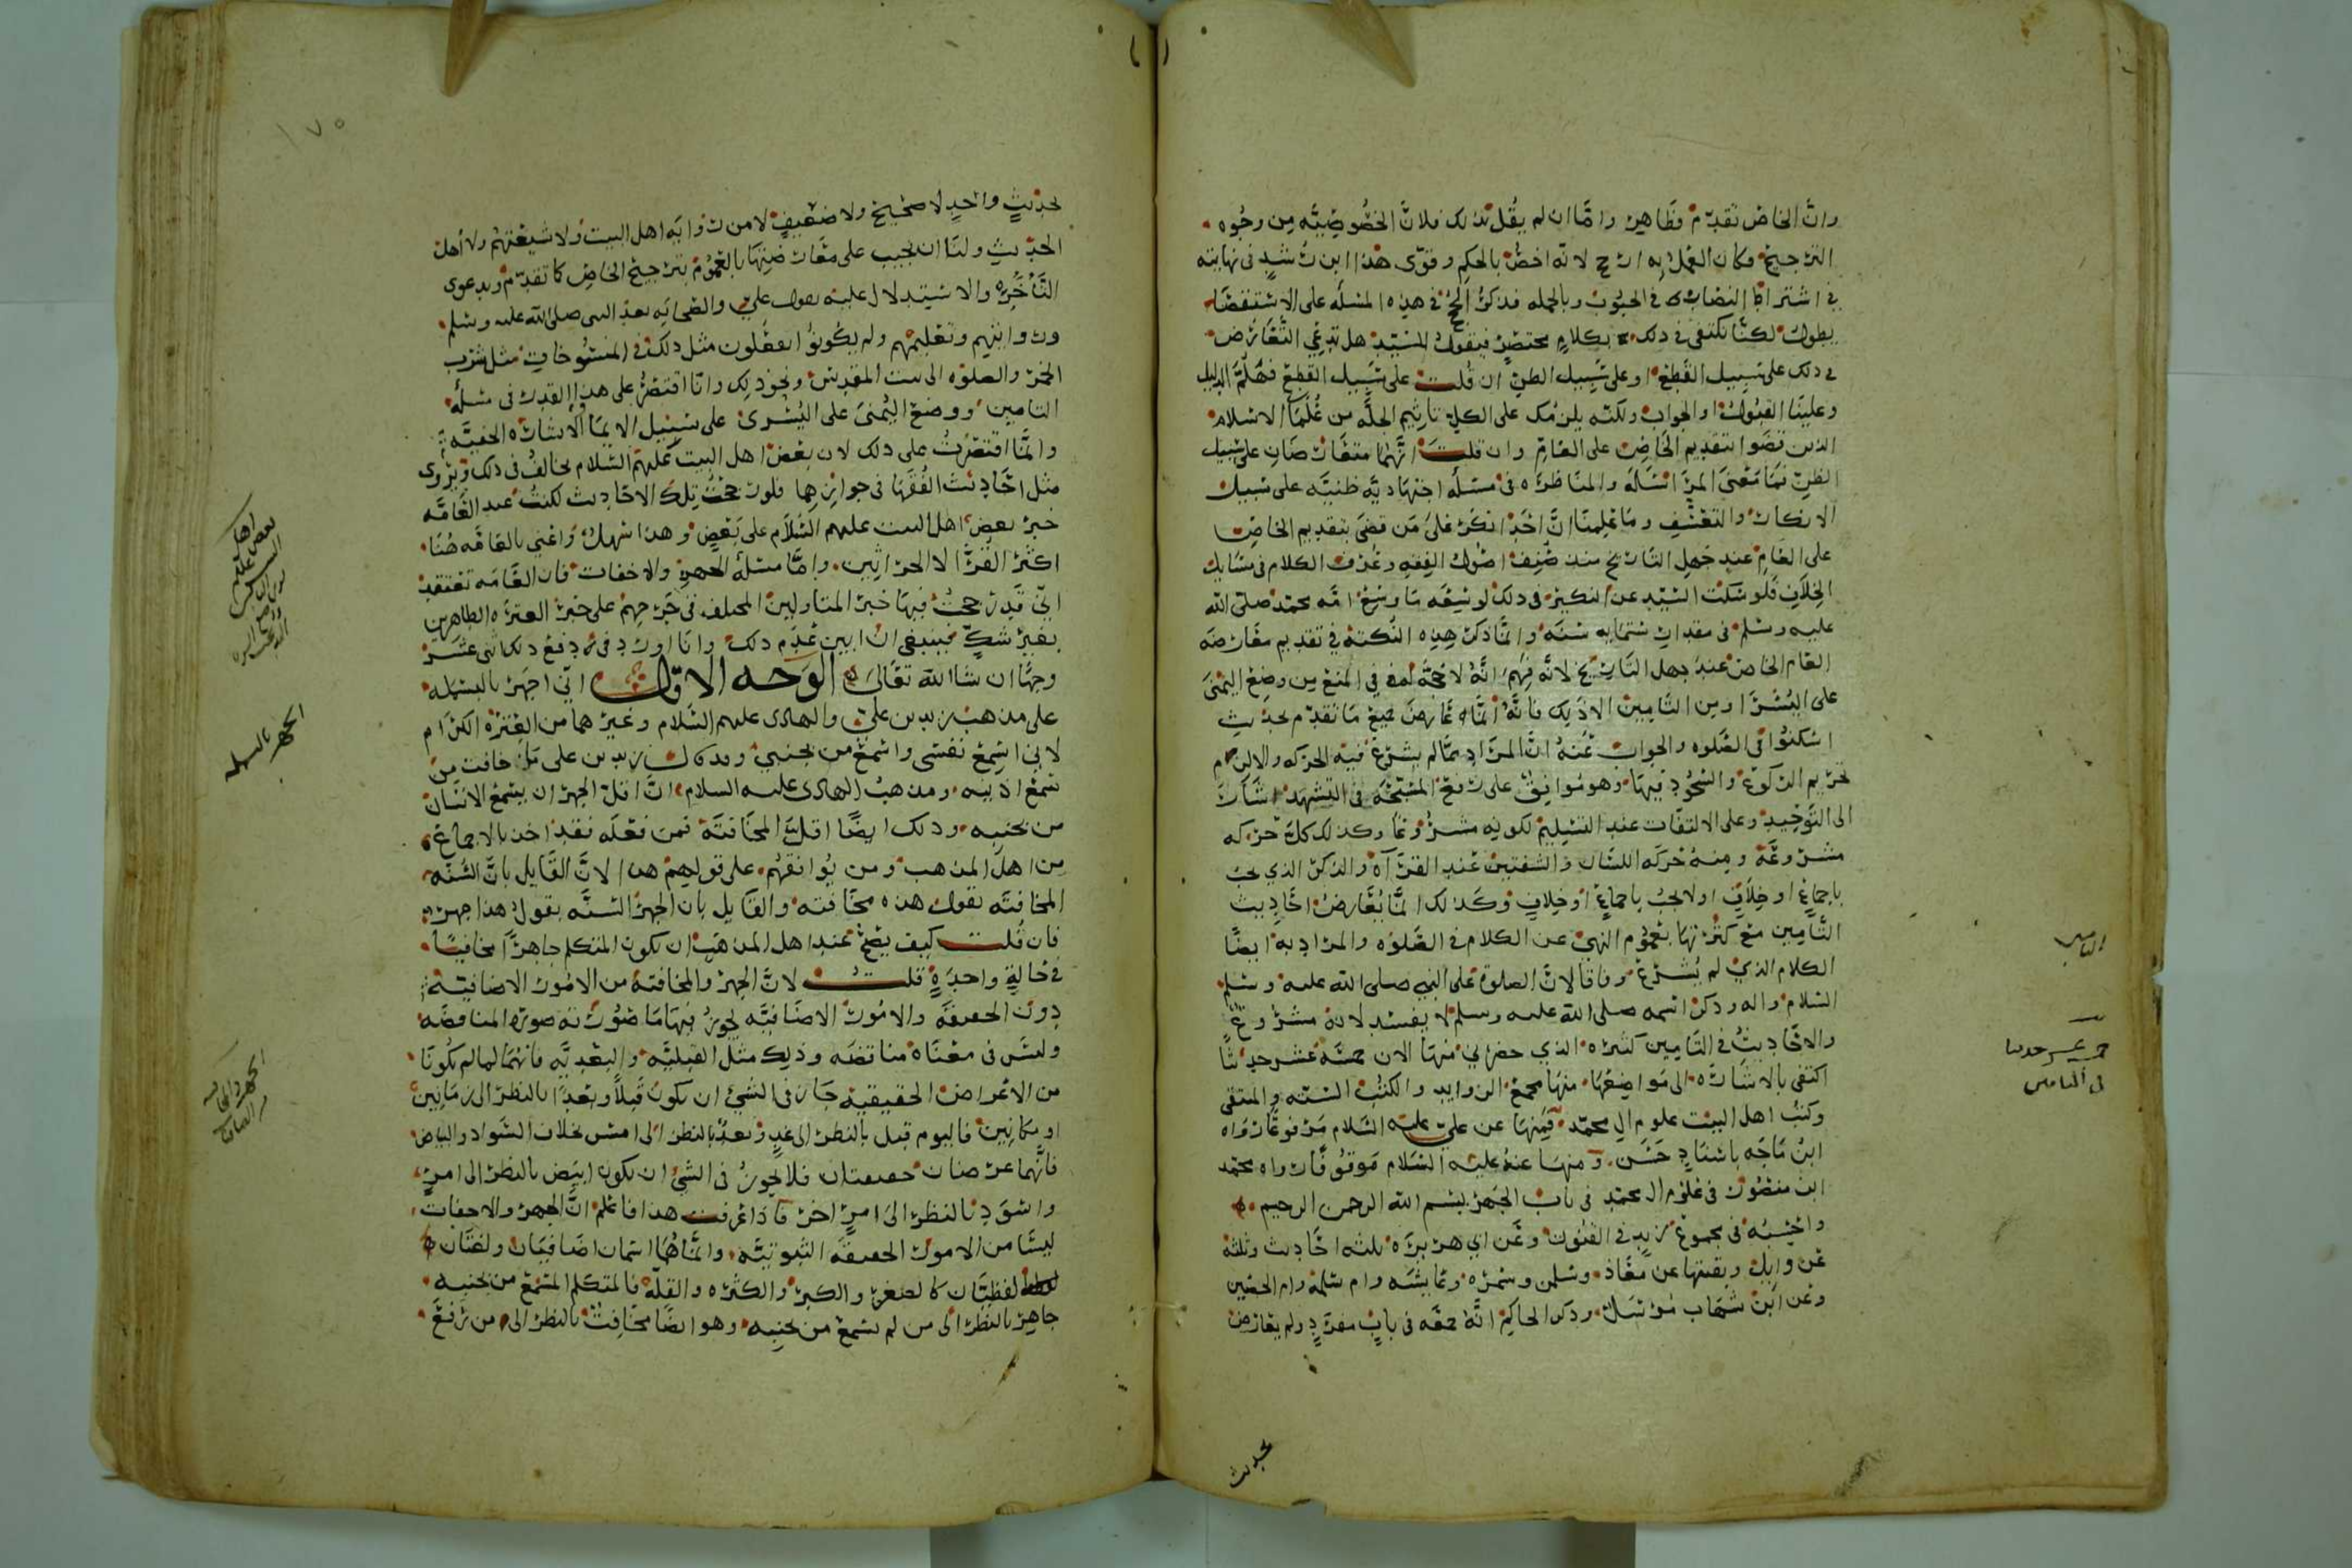 وانَّ الخاص تقدّم فظاهر واما ان لم يقل بذلك فلانَّ الخصوصيّه من وجوه
الترجيح وكان العمل به ارجح لانّه اخصُّ بالحكم وقوّى هذا ابن رشد في نهايته
في اشتراط النصاب في الحبوب وبالجمله فذكرُ الحجج في هذه المسئله على الاستقصا
يطول لكنّا نكتفى في ذلك بكلام مختصر فنقول للسّيد هل تدّعي التعارض
في ذلك على سبيل القطع او على سبيل الظن ان قلت على سبيل القطع فهلمّ الدليل
وعلينا القبول او الجواب ولكنّه يلزمك على الكل تاثيم الجلّه من علما الاسلام
الذين قضوا بتقديم الخاص على العام وان قلت انّهما متعارضان على سبيل
الظن فما معنى المراسله والمناظره في مسئله اجتهاديّه ظنيّه على سبيل
الانكار والتعنّيف وما علمنا انَّ احدًا انكر على من قضى بتقديم الخاص
على العام عند جهل التاريخ منذ صُنّف اصول الفقه وعُرف الكلام في مسايل
الخلاف فلو سكت السّيد عن النكير في ذلك لوسعه ما وسع امّه محمّد صلى الله
عليه وسلم في مقدار ستمايه سنه وانّما ذكر هذه النكتة في تقديم معارضه
العام الخاص عند جهل التاريخ لانّه فهم انّهُ لا حجّة لهم في المنع من وضع اليمنى
على اليُسرا ومن التامين الا ذلك فانّهُ انما عارض جميع ما تقدّم بحديث
اسكنوا في الصَلوه والجواب عنهُ انَّ المراد ممّا لم يشرع فيه الحركه والا لزم
تحريم الركوع والسّجُود فيها وهو مُوافق على رفع المسبّحَه في التشهد اشارة
الى التّوحيد وعلى الالتفات عند التسليم لكونه مشروعًا وكذلك كلّ حركه
مشروعَة ومنهُ حركه اللسان والشفتين عند القرآه والذكر الذي يجب
باجماع او خلاف او لا يجبُ باجماع او خلاف وكذلك انّما يُعَارض احاديث
التّامين مع كثرتها بعموم النهي عن الكلام في الصّلوه والمراد به ايضًا
الكلام الذي لم يُشرع وفاقا لانَّ الصلوة على النبي صلى الله عليه وسلم
السّلام واله وذكر اسمه صلى الله عليه وسلم لا يفسد لانه مشروع
والاحاديثُ في التامين كثيره الذي حضرني منها الان خمسَه عشر حديثًا
اكتفي بالاشارَه الى مواضعها منها مجمع الزوايد والكتُب السّته والمنتقى
وكتب اهل البيت علوم ال محمّد فمِنها عن علي عليه السّلام مرفوعًا رواه
ابنُ ماجَه باسنادٍ حَسَن ومنها عنهُ عليه السّلام موقُوفًا رواه محمّد
ابن منصُور في علوم ال محمّد في باب الجهر ببسم الله الرحمن الرحيم
واحسبُه في مجموع زيد في القنوت وعن ابي هريرَه ثلثه احاديث وثلثه
عن وايل وبقيتها عن معاذ وسلمن وسمرَه وعايشه وام سلمة وام الحصين
وعن ابن شهاب مُرسَل وذكر الحاكم انّهُ صحّه في بابٍ مفردٍ ولم يعارض
بحديث
التامين
خمسه عشر حديثا
في التامين
١٧٥
بحديثٍ واحدٍ لا صحيح ولا ضعيفٍ لا من روايَه اهل البيت ولا شيعتهم ولا اهل
الحديث ولنا ان نجيب على معارضتها بالعموم بترجيح الخاص كما تقدم وبدعوى
التّأخُّر والاستدلال عليه بعمل علي والصحابَه بعد النبى صلى الله عليه وسلم
وروايتهم وتعليمهم ولم يكونُوا يفعلون مثل ذلك في المنسُوخات مثل شرب
الخمر والصلوه الى بيت المقدس ونحو ذلك وانا اقتصرُ على هذا القدر في مسئله
التامين ووضع اليُمنى على اليُسرى على سبيل الايما والاشاره الخفيّة
وانّما اقتصرتُ على ذلك لان بعض اهل البيت عليهم السّلام يخالفُ في ذلك ويروى
مثل احاديث الفُقها في جوازهما فلو رجحتُ تِلك الاحاديث لكنتُ عند العامّه
خبر بعض اهل البيت عليهم السّلام على بعض وهذا سهل واعني بالعامّه هنا
اكثر القُرّا لا الحراثين وامّا مسئلة الجهر والاخفات فان العامه تعتقد
انّي قد رجحتُ فيها خبر المتاولين المختلف في جرحهم على خبر العترَه الطاهرين
بغير شكٍّ فينبغي ان ابين عَدَم ذلك وانا اورد في دفع ذلك اثنى عشر
وجهًا ان شا الله تعالى الوَجه الاوّل انّي اجهر بالبسمله
على مذهب زيد بن علي والهادى عليهم السّلام وغيرهما من العترَه الكرام
لانى اسمع نفسى واسمع من بجنبي وقد قال زيد بن على ما خافت من
سَمع اذنيه ومذهبُ الهادى عليه السلام انَّ اقلّ الجهر ان يسمع الانسان
من بجنبه وذلك ايضًا اقلّ المخافتَة فمن فعله فقد اخذ بالاجماع
من اهل المذهب ومن يُوافقهُم على قولهم هذا لانَّ القايل بانّ السُنّه
المخافتَه يقول هذه مخافته والقايل بان الجهر السنّه يقول هذا جهر
فان قُلت كيف يصحّ عند اهل المذهب ان يكون المتكلم جاهرًا مخافتًا
في حالةٍ واحدةٍ قلت لانَّ الجهر والمخافتة من الامُور الاضافيّة
دون الحقيقه والامُور الاضافيّه يجوز فيها ما صُورته صورَه المناقضه
وليسَ في معناه مناقضه وذلك مثل القبليّه والبعديّه فانّهما لما لم يكونا
من الاعراض الحقيقية جاز في الشيْ ان يكون قبلاً وبعدًا بالنظر الى زمانين
او مكانين فاليوم قبل بالنظر الى غدٍ وبعدُ بالنظر الى امسِ بخلاف السّواد والبياض
فانّهما عرضان حقيقيان فلا يجُوز في الشيْ ان يكون ابيَض بالنظر الى امرٍ
واسوَد بالنظر الى امرٍ اخر فاذا عرفت هذا فاعلم انَّ الجهر والاخفات
ليسا من الامور الحقيقه الثبوتيّه وانّما هُما اسمان اضافيان ولغتان
لفظيتان كالصغر والكبر والكثره والقلّة فالمتكلم المسمع من بجنبه
جاهر بالنظر الى من لم يسمع من بجنبِه وهو ايضًا مخافِتٌ بالنظر الى من رفع
الجهر بالبسمله